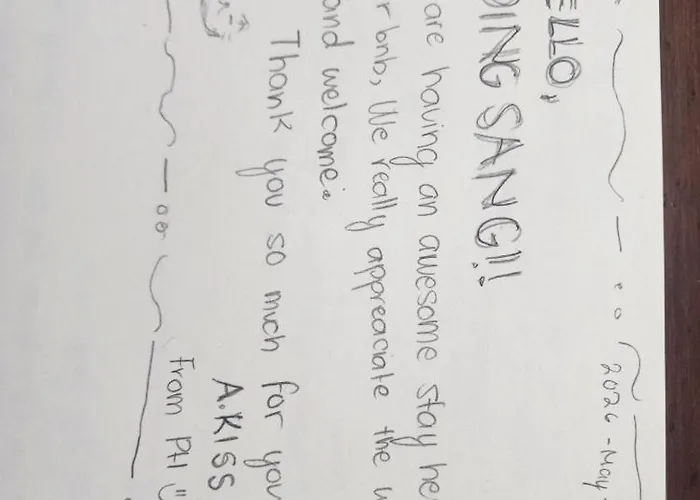 2026 - May
ELLO,
DING SANG!!
are having an awesome stay he
r bnb, We really appreaciate the w
and welcome.
Thank you so much for you
A.KISS
From PH